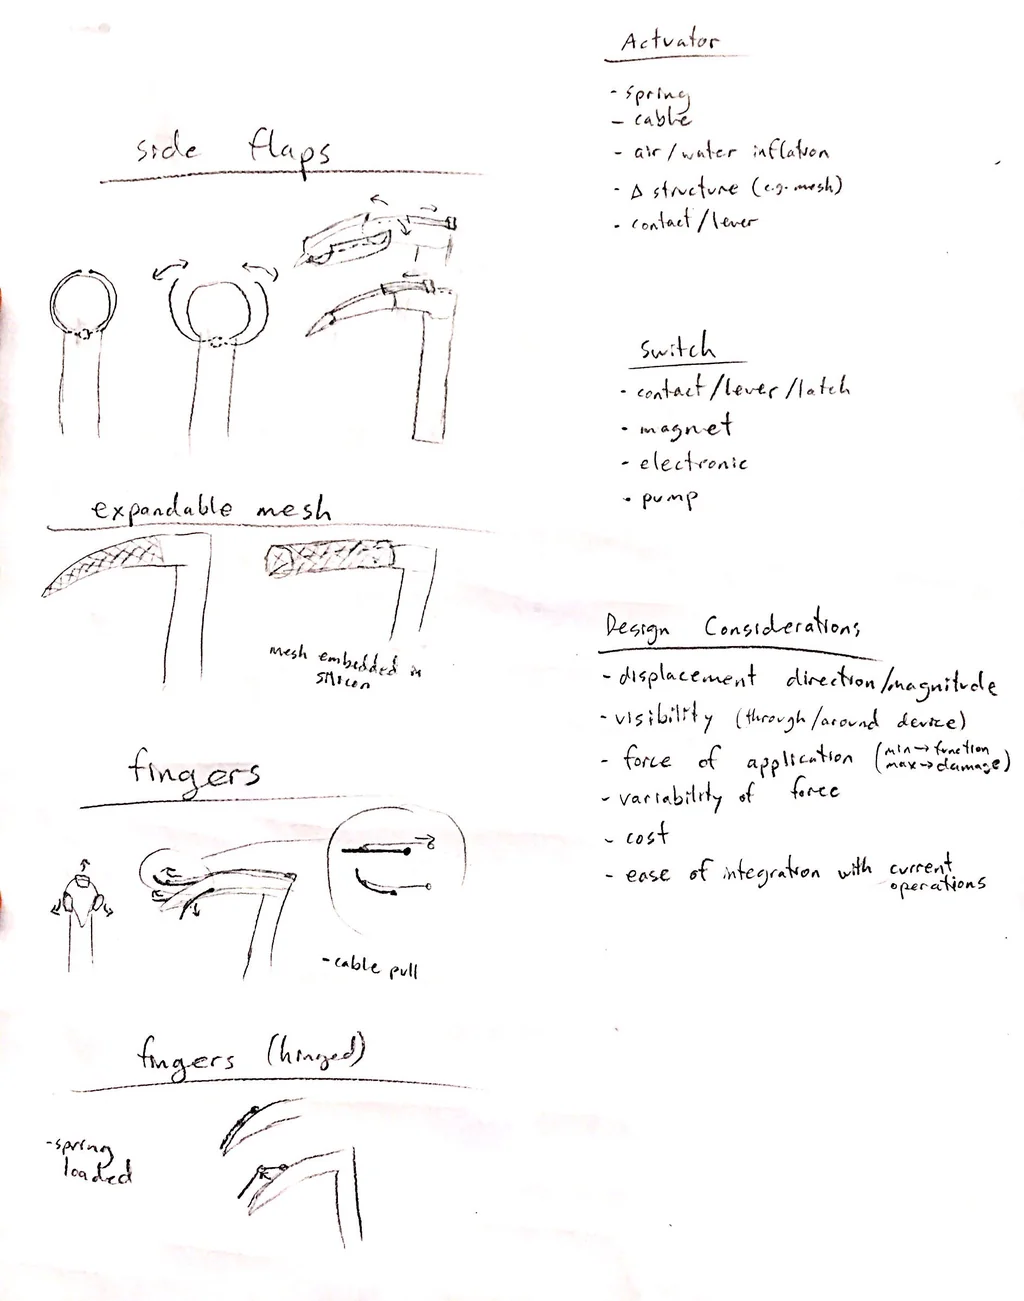 side flaps
expandable mesh
mesh embedded in
silicon
fingers
-cable pull
fingers (hinged)
-spring
loaded
Actuator
- spring
- cable
- air/water inflation
- Δ structure (e.g. mesh)
- contact/lever
Switch
- contact/lever/latch
- magnet
- electronic
- pump
Design Considerations
- displacement direction/magnitude
- visibility (through/around device)
- force of application (min→function
max→damage)
- variability of force
- cost
- ease of integration with current
operations